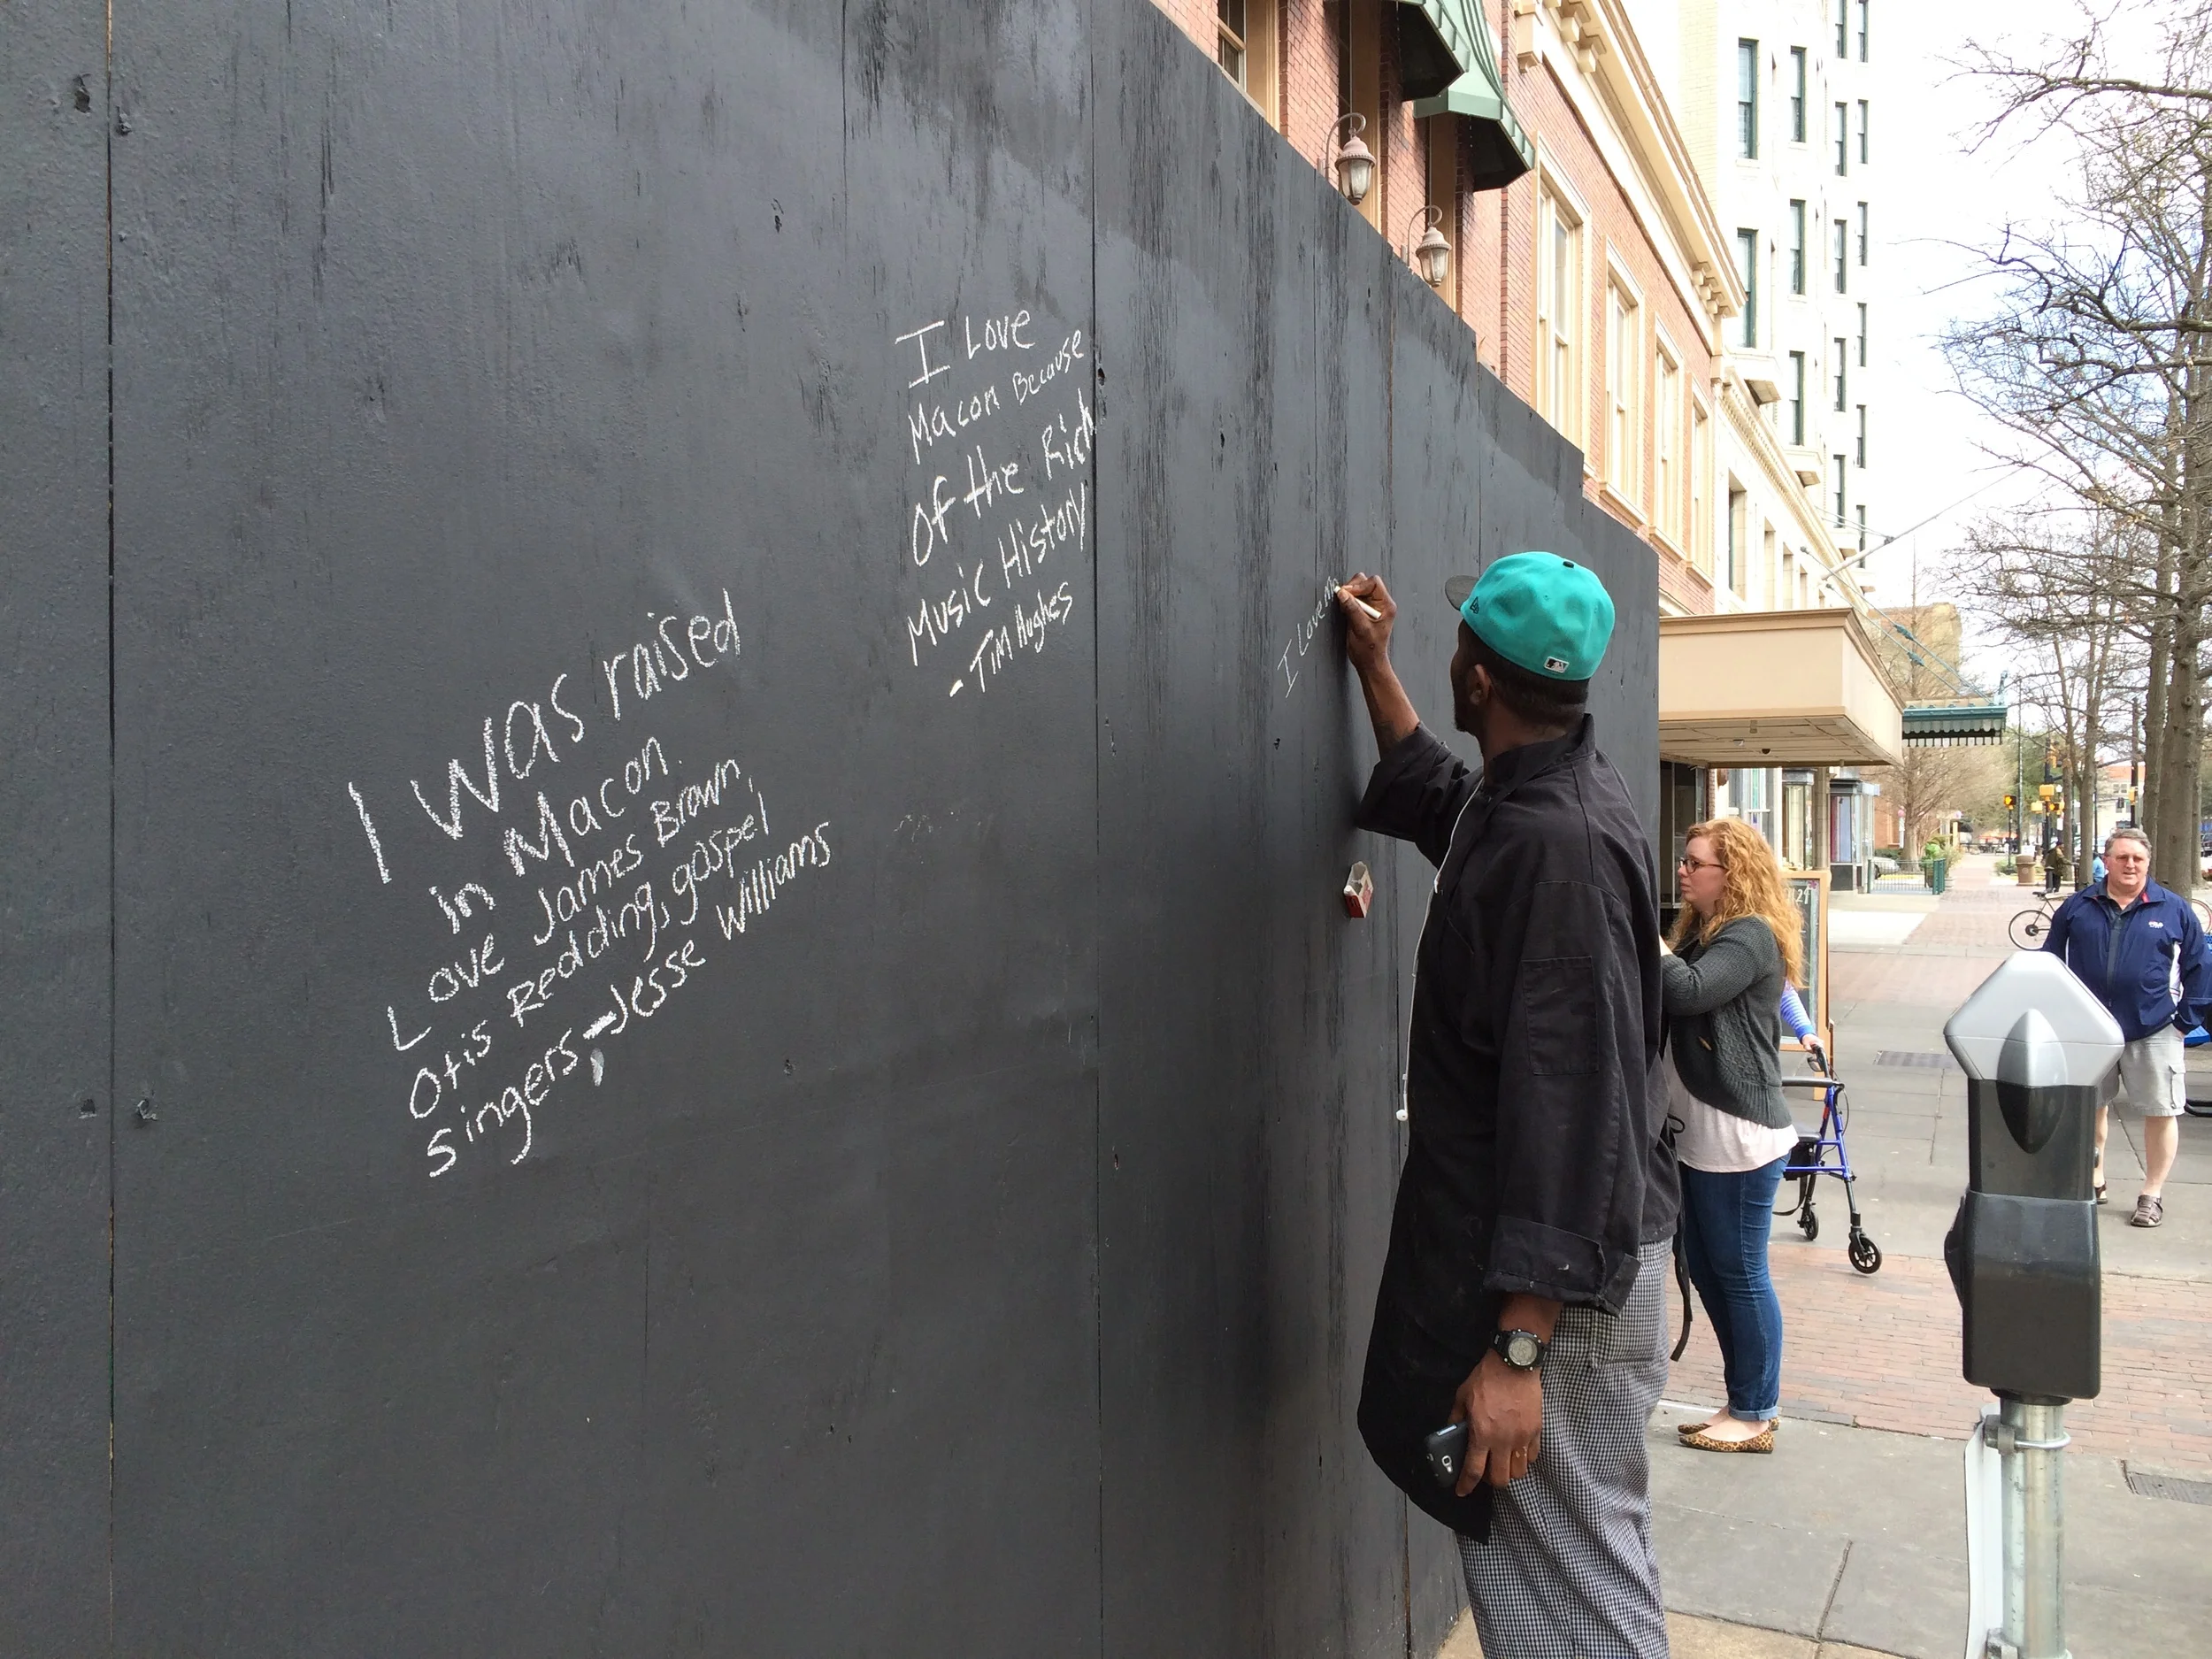 I was raised
in Macon.
Love James Brown,
Otis Redding, gospel
singers, - Jesse Williams
I Love
Macon Because
Of the Rich
Music History
- Tim Hughes
I Love